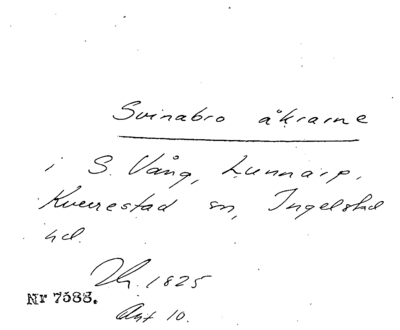 Svinabro åkrarne
i S. Vång, Lunnarp,
Kverrestad sn, Ingelstad
hd.
1825
Nr 7588.
Akt 10.